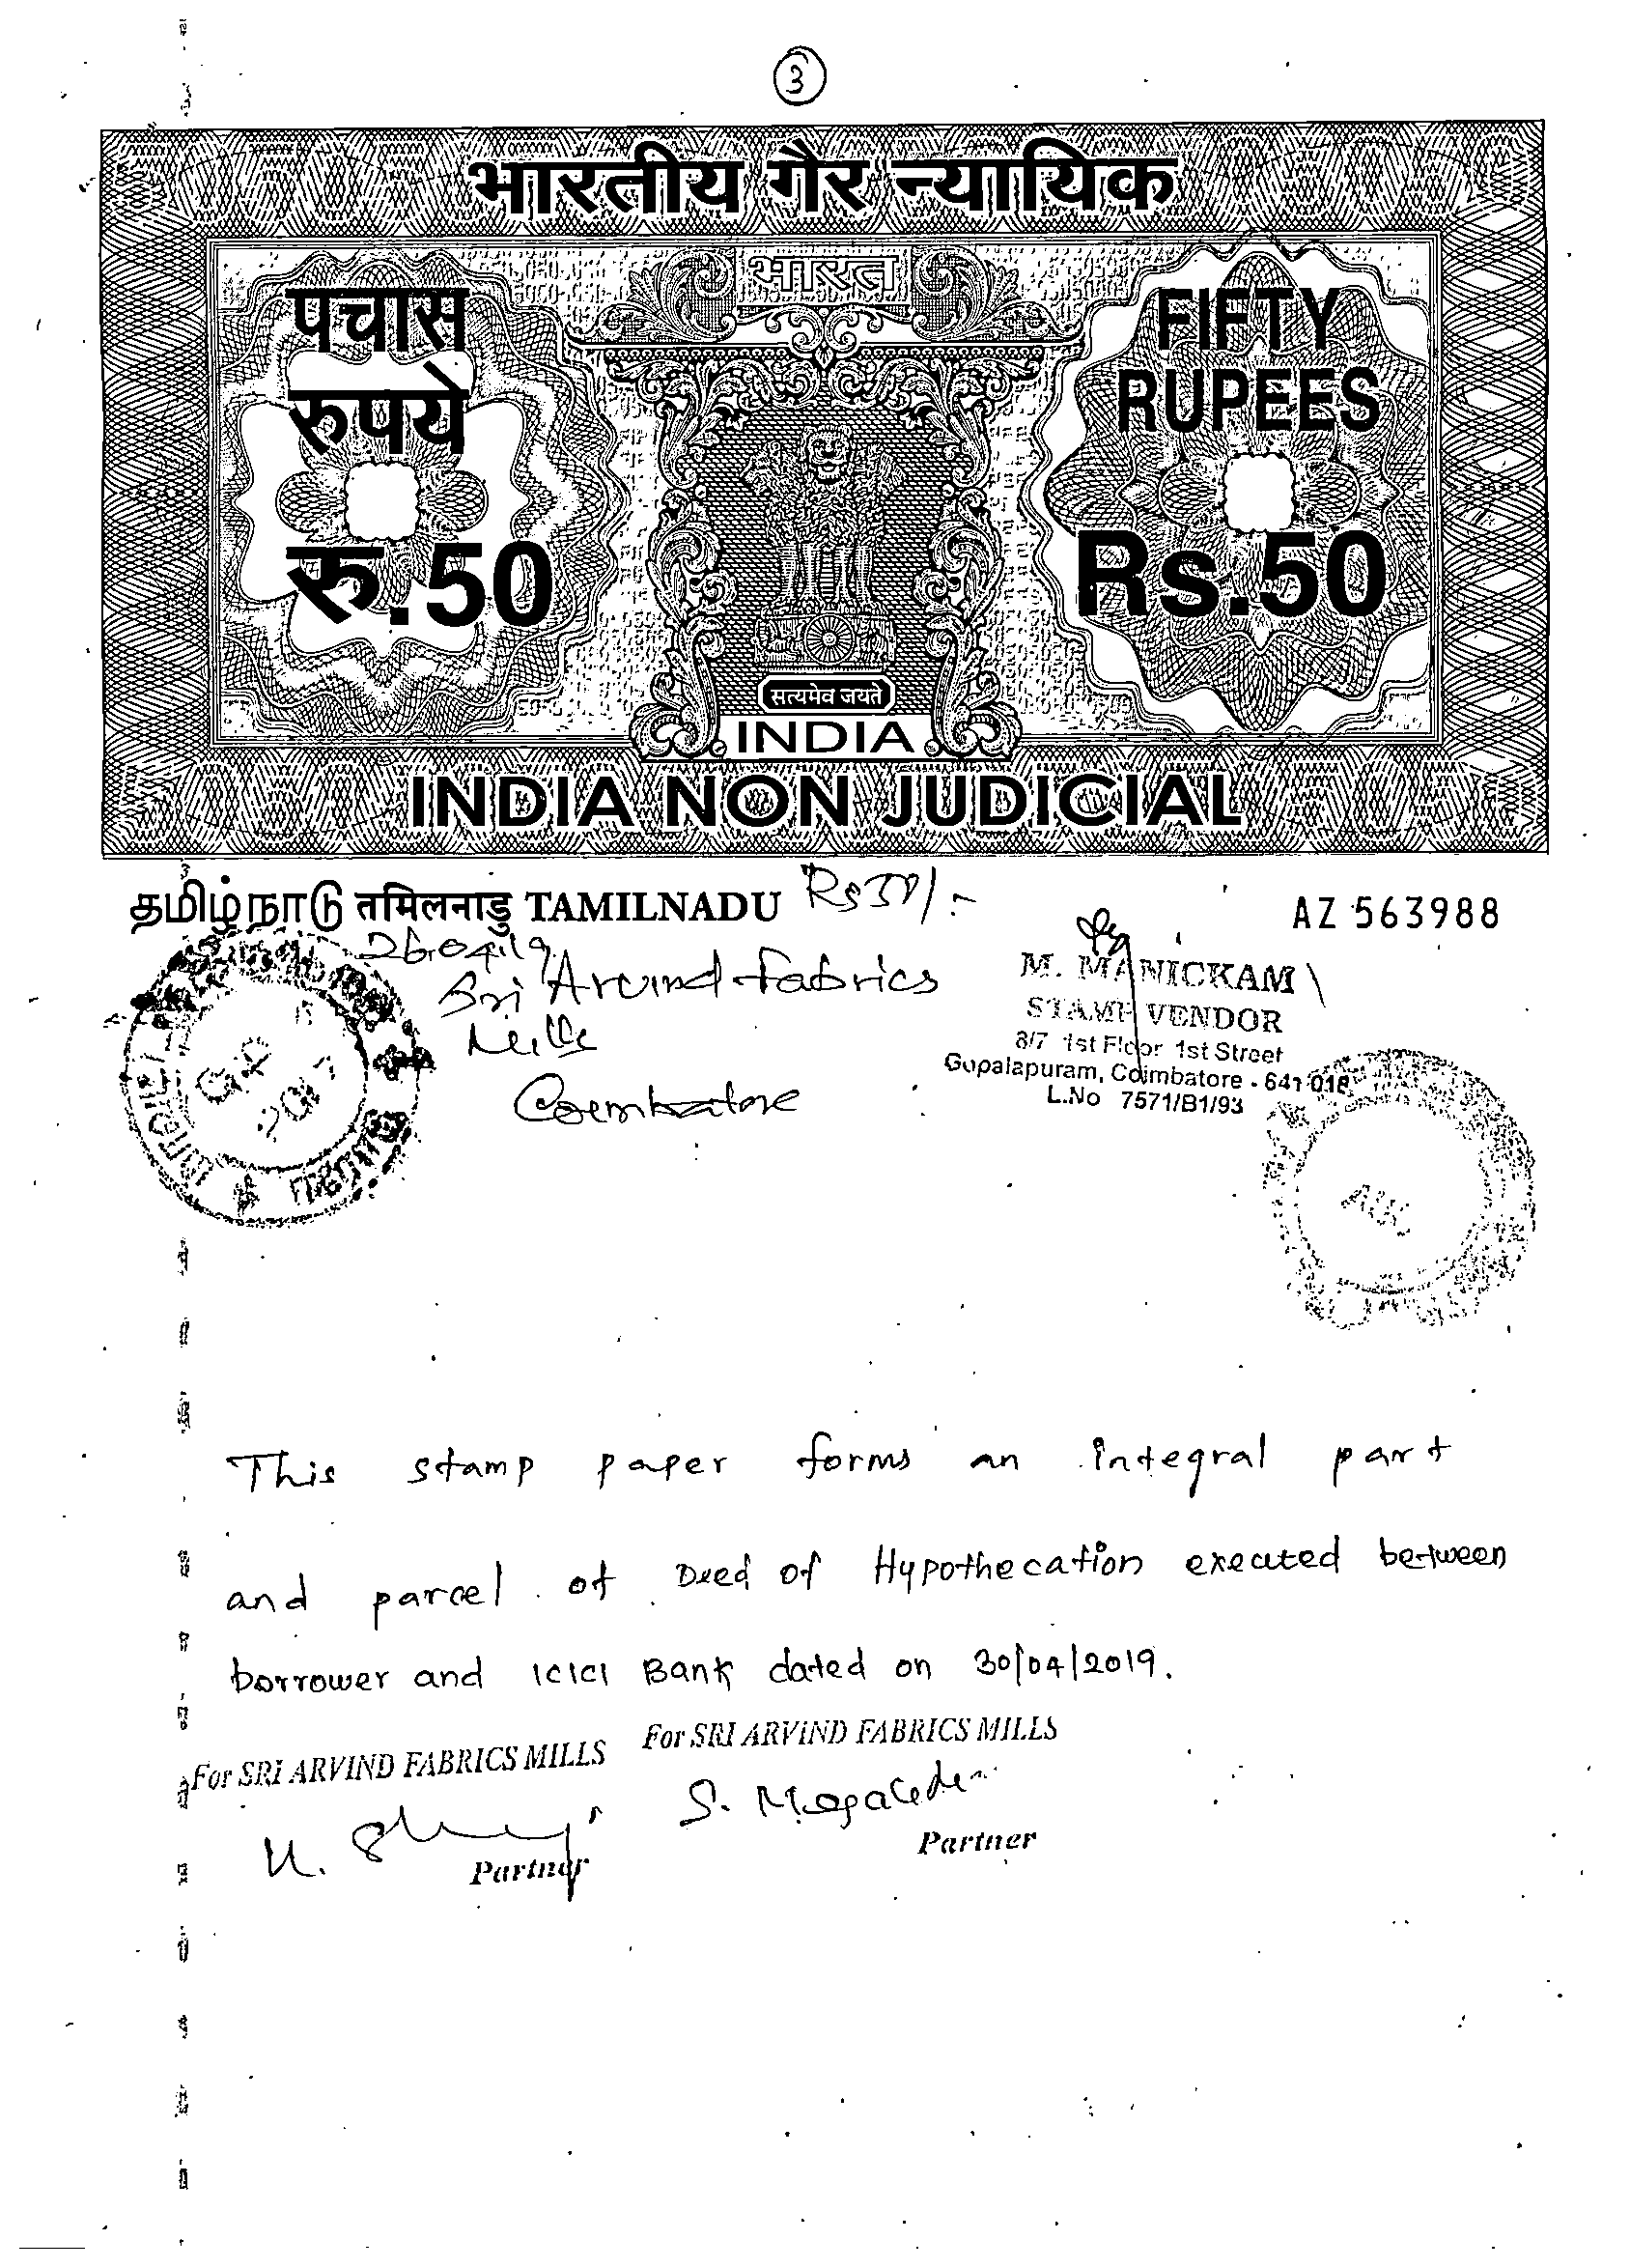 3
भारतीय गैर न्यायिक
भारत
पचास
रुपये
रु.50
FIFTY
RUPEES
Rs.50
सत्यमेव जयते
INDIA
INDIA NON JUDICIAL
தமிழ்நாடு तमिलनाडु TAMILNADU Rs 50/-
AZ 563988
26.04.19
Sri Arvind Fabrics
Mills
Coimbatore
M. MANICKAM
STAMP VENDOR
8/7 1st Floor 1st Street
Gopalapuram, Coimbatore - 641 018
L.No 7571/B1/93
This stamp paper forms an integral part
and parcel of Deed of Hypothecation executed between
borrower and ICICI Bank dated on 30/04/2019.
For SRI ARVIND FABRICS MILLS
Partner
For SRI ARVIND FABRICS MILLS
Partner